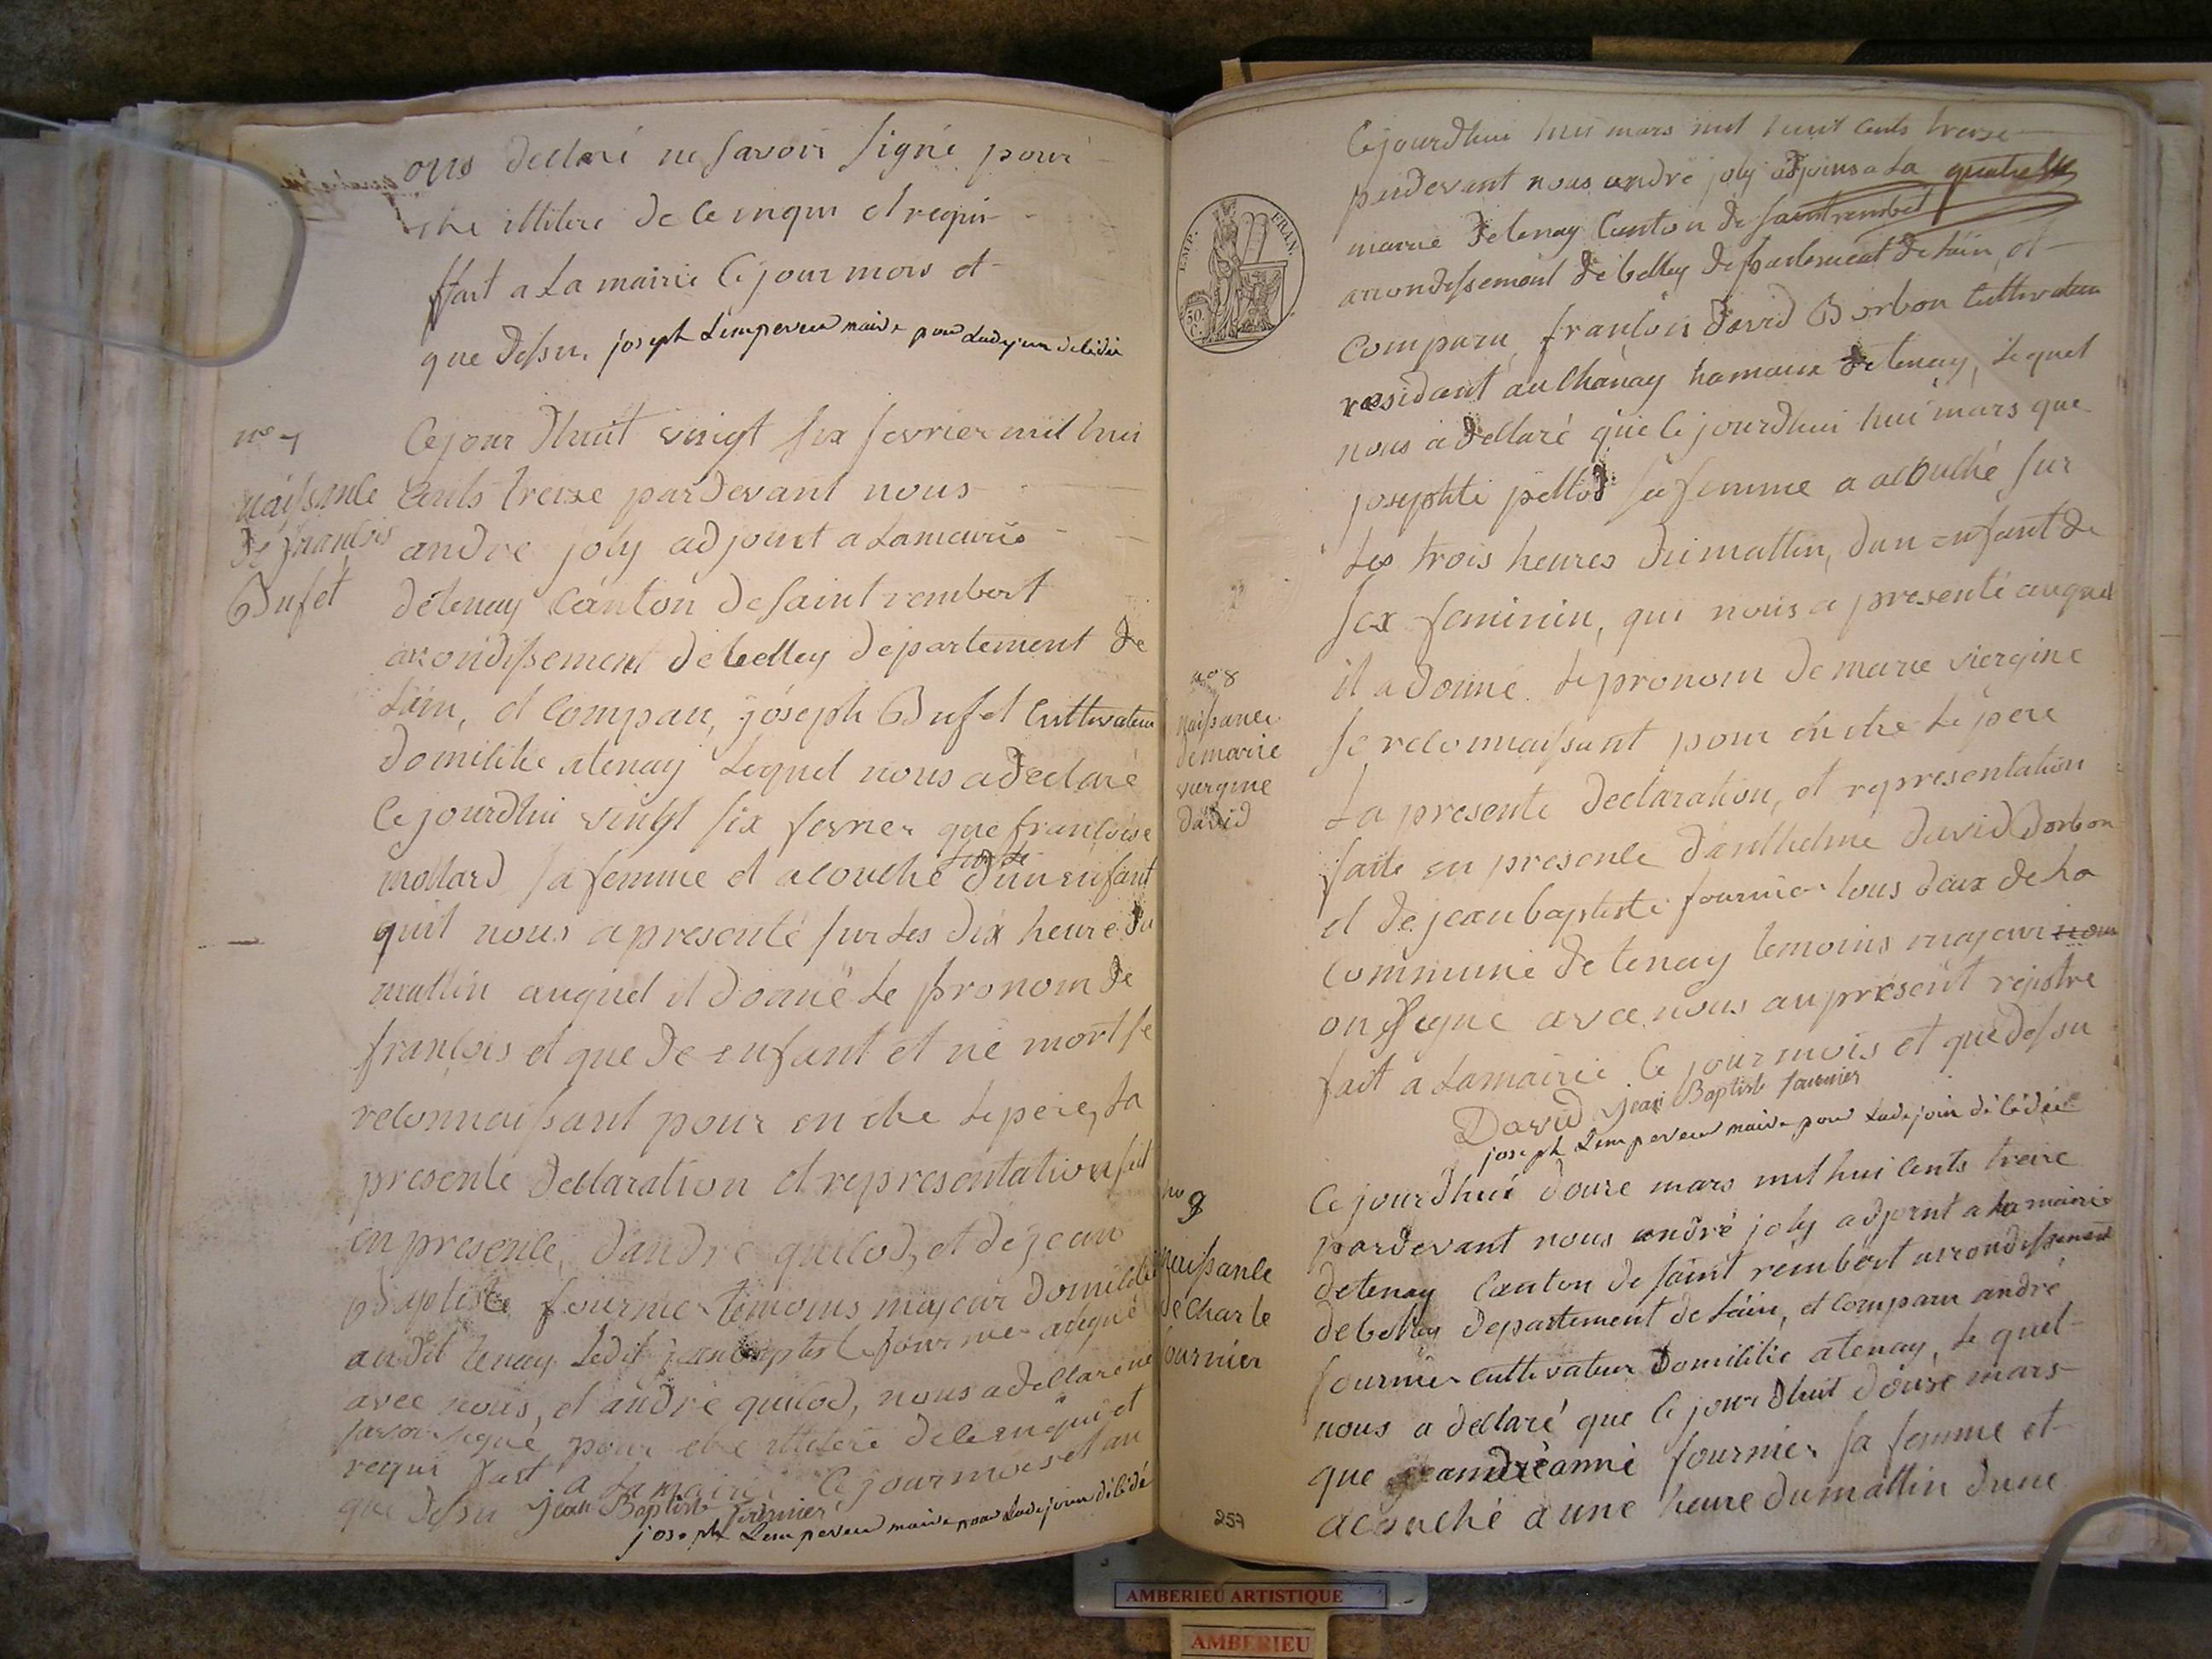 ons declaré ne savoir signé pour
etre illitere de ce enqui et requi
ffait a La mairie Ce jour mois et
que dessu. joseph Lempereur maire pour Ladejoin délédée
no 7
naissance
de francois
Bufet
Cejour dhuit vingt six fevrier mil hui
Cents treize pardevant nous
andre joly adjoint a Lamairie
detenay Canton de saint rembert
arondissement debelley departement de
Lain, et Comparu, joseph Bufet Cultivateur
domicilie atenay Lequel nous adeclaré
Cejourdhui vingt six fevrier que francoise
mollard sa femme et acouché dun enfant
quil nous apresenté sur Les dix heure du
mattin auquel il donné Le pronom de
francois et que de enfant et né mort se
reconnaissant pour en etre Lepere, La
presente declaration et representation fait
en presence, dandre quilod, et de jean
Baptiste fournier temoins majeur domicilie
audit tenay Ledit jean baptiste fournier asigné
avec nous, et andre quilod, nous adeclare ne
savoir signé pour etre illitere de ce enqui et
requi fait a Lamairie Ce jour mois et an
que dessu Jean Baptiste fournier
joseph Lempereur maire pour Ladejoin délédé
EMP. FRAN.
50 C.
Cejourdhui hui mars mil huit Cents treize
pardevant nous andre joly adjoins a La
mairie detenay Canton de saintrembert
arrondissement de belley departement de Lain, et
Comparu, francois David Borbon Cultivateur
residant au Chanay hamaux de tenay, Lequel
nous a declaré que Ce jourdhui hui mars que
josephte pellod sa femme a acouché sur
Les trois heures du mattin, dun enfant de
sex feminin, qui nous a presenté auquel
il a donné Le pronom de marie viergine
se reconnaissant pour en etre Le pere
La presente declaration, et representation
faite en presence danthelme David Borbon
et de jean baptiste fournier tous deux de La
commune de tenay temoins majeur nous
on signe avec nous au présent rejistre
fait a Lamairie Ce jour mois et que dessu
David Jean Baptiste fournier
joseph Lempereur maire pour Ladejoin délédée
no 8
naissance
de marie
viergine
david
no 9
naissance
de Charle
fournier
Ce jourdhui douze mars mil hui Cents treize
pardevant nous andré joly adjoint a La mairie
detenay Canton de saint rembert arrondissement
debelley departement de Lain, et Comparu andré
fournier Cultivateur domicilié atenay, Lequel
nous a declaré que Ce jour dhuit douze mars
que andréanne fournier sa femme et
acouché a une heure dumattin dune
257
AMBERIEU ARTISTIQUE
AMBERIEU